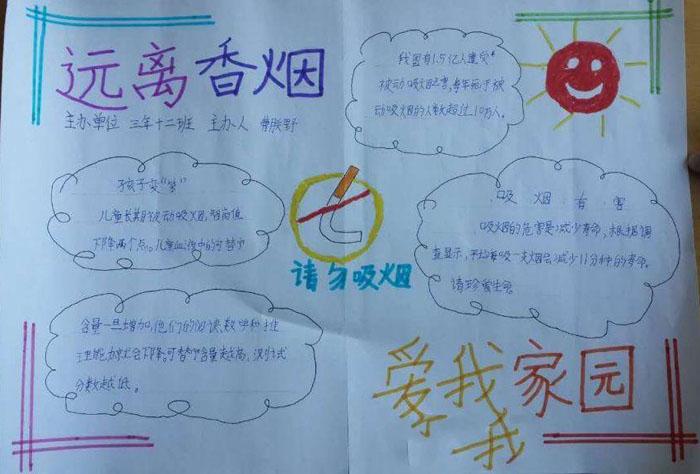 远离香烟
主办单位 三年十二班 主办人
我国有1.5亿人遭受
被动吸烟危害,每年死于被
动吸烟的人数超过10万人。
孩子变“笨”
儿童长期被动吸烟,智商值
下降两个点。儿童血液中的可替宁
含量一旦增加,他们的阅读、数学和推
理能力就会下降。可替宁含量越高,测试
分数越低。
请勿吸烟
吸烟有害
吸烟的危害是减少寿命,根据调
查显示,平均每吸一支烟会减少11分钟的寿命。
请珍爱生命
爱我家园
我